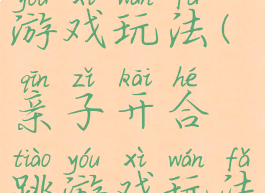 yóu xì wán fǎ
游戏玩法(
qīn zǐ kāi hé
亲子开合
tiào yóu xì wán fǎ
跳游戏玩法